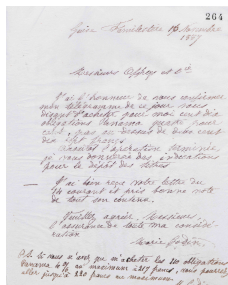 264
Guise Familistère 16 Novembre
1887
Messieurs Offroy et Cie
J'ai l'honneur de vous confirmer
mon télégramme de ce jour vous
disant d'acheter pour moi cent dix
obligations Panama quatre pour
cent, pas au dessus de deux cent
dix sept francs.
L'achat d'opération terminée
je vous donnerai des indications
pour le dépôt des titres
— J'ai bien reçu votre lettre du
14 courant et pris bonne note
de tout son contenu.
Veuillez agréer, Messieurs,
l'assurance de toute ma considé-
ration
Marie Godin
P.S. Je vous prie, que m'acheter les 110 obligations
Panama 4 % au maximum à 217 francs, mais pourrez
aller jusqu'à 220 francs au maximum.